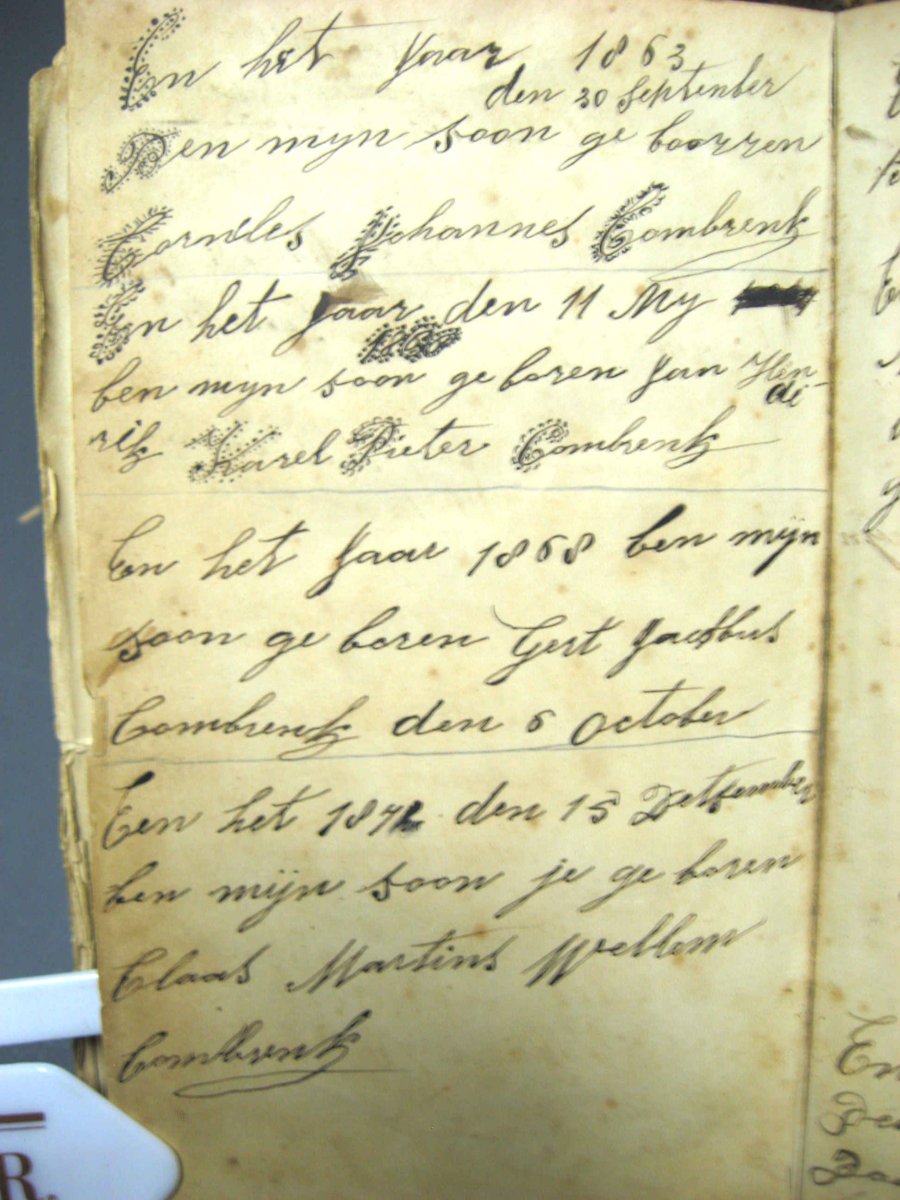 En het Jaar 1863
den 30 September
Ben mijn soon ge boorren
Cornelles Johannes Combrenk
En het Jaar den 11 My
ben mijn soon ge boren Jan Hen
di
rik Karel Pieter Combrenk
En het Jaar 1868 ben mijn
soon ge boren Gert Jacobus
Combrenk den 6 October
Een het den 15 Detsember
ben mijn soon je ge boren
Claas Martins Wellem
Combrenk
R.